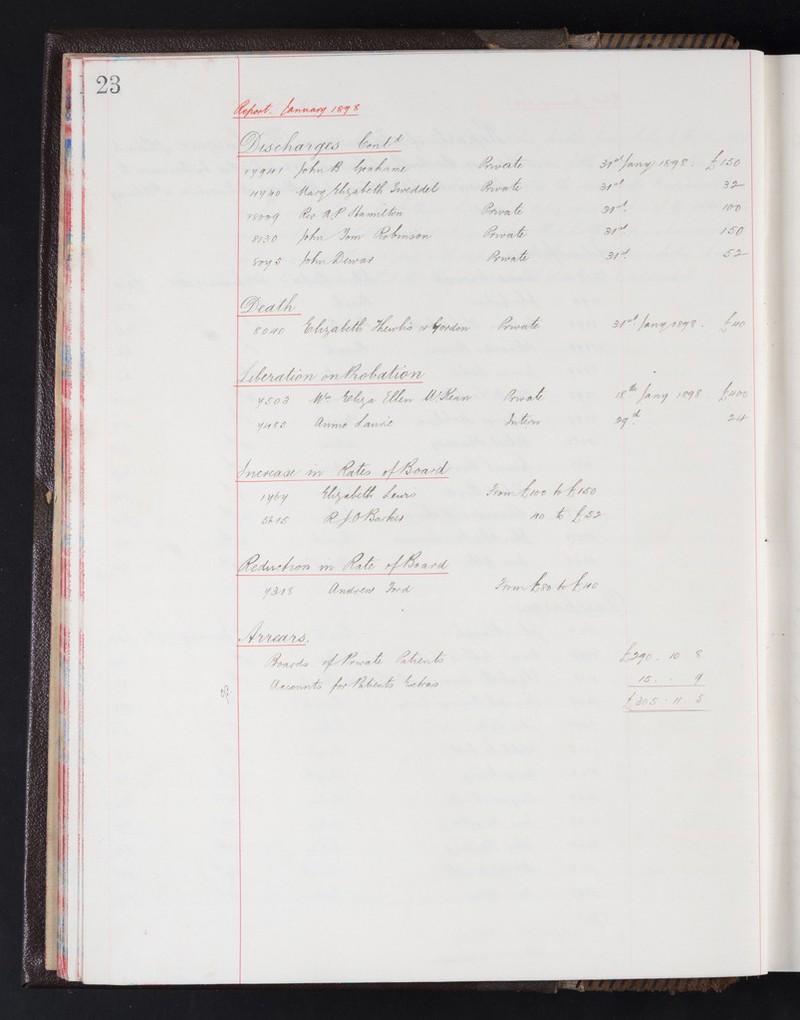 23
Report. January 1898
Discharges Contd
John B Grahame Private 31st Jany 1898. £150
Mary Elizabeth Tweddel Private 31st 32
Rev A.P. Hamilton Private 31st. 100
8130 John Tom Robinson Private 31st 150
John Dewar Private 31st. 52
Death
8040 Elizabeth Thewlis or Gordon Private 31st. Jany 1898. £40
Liberation on Probation
7503 Eliza Ellen McKean Private 18th Jany 1898 £400
Annie Laurie Intern 29th. 24
Increase in Rates of Board
Elizabeth From £100 to £150
R J O Barker 40 to £52
Reduction in Rate of Board
Andrew Ford From £80 to £40
Arrears.
Boards of Private Patients £290. 10 8
Accounts for Patients Extras 15. . 9
£305. 11. 5